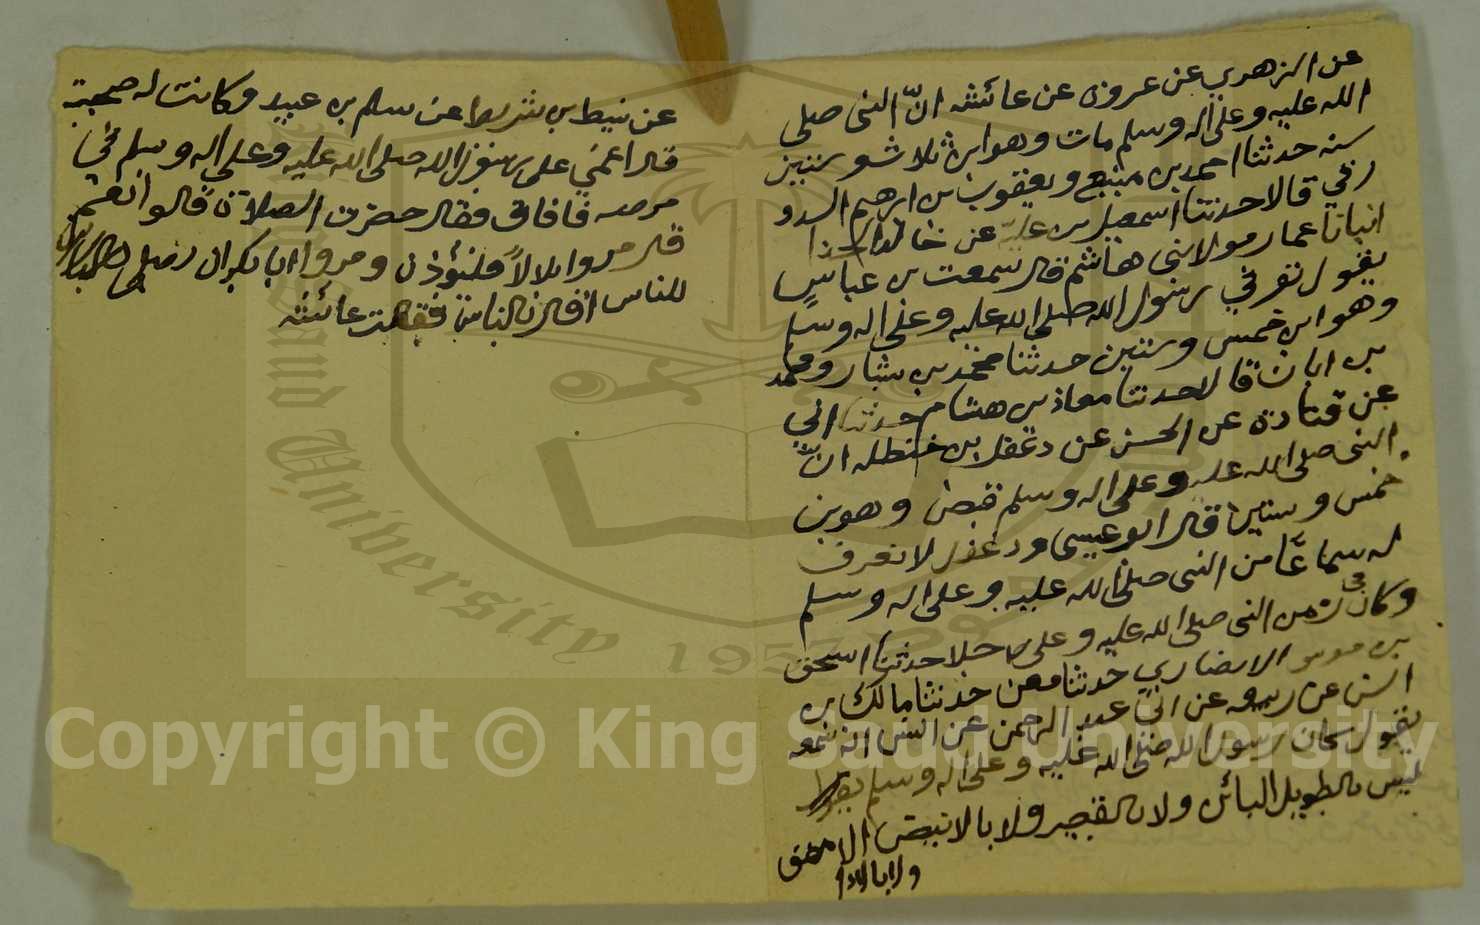 عن الزهري عن عروة عن عائشه انّ النبى صلى
الله عليه وعلى اله وسلم مات وهو ابن ثلاث وستين
سنه حدثنا احمد بن منيع ويعقوب بن ابرهيم الدو
رقي قالا حدثنا اسمعيل بن عليّه عن خالد الحذا
انبانا عمار مولا بنى هاشم قال سمعت بن عباسٍ
يقول توفي رسول الله صلى الله عليه وعلى اله وسلم
وهو ابن خمس وستين حدثنا محمد بن بشار ومحمد
بن ابان قالا حدثنا معاذ بن هشام حدثنا ابي
عن قتادة عن الحسن عن دغفل بن حنظله انّ
النبى صلى الله عليه وعلى اله وسلم قبض وهو بن
خمس وستين قال ابو عيسى ودغفل لا نعرف
له سماعًا من النبى صلى الله عليه وعلى اله وسلم
وكان في زمن النبى صلى الله عليه وعلى رجلا حدثنا اسحق
بن موسى الانصاري حدثنا معن حدثنا مالك بن
انس عن ربيعه عن ابي عبد الرحمن عن انس انه سمعه
يقول كان رسول الله صلى الله عليه وعلى اله وسلم
ليس بالطويل البائن ولا بالقصير ولا بالابيض الامهق
ولا بالادا
عن نبيط بن شريط عن سلم بن عبيد وكانت له صحبة
قال اغمي على رسول الله صلى الله عليه وعلى اله وسلم في
مرضه فافاق فقال حضرت الصلاة قالوا نعم
قال مروا بلالاً فليؤذن ومروا ابا بكر ان يصلي
للناس او قال بالناس فقالت عائشه
King Saud University
1957
Copyright © King Saud University